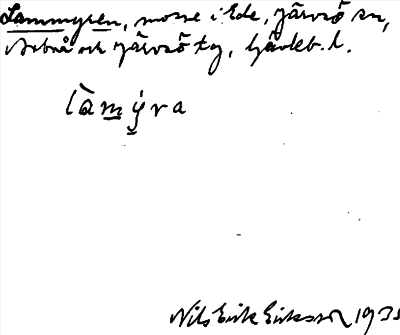 Lammyren, mosse i Ede, Järvsö sn,
Arbrå och Järvsö tg, Gävleb. l.
làmy̌ra
Nils Erik Eriksson 1935